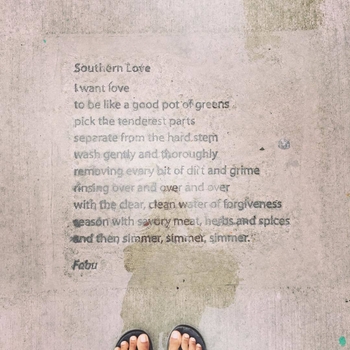 Southern Love
I want love
to be like a good pot of greens
pick the tenderest parts
separate from the hard stem
wash gently and thoroughly
removing every bit of dirt and grime
rinsing over and over and over
with the clear, clean water of forgiveness
season with savory meat, herbs and spices
and then simmer, simmer, simmer.
Fabu